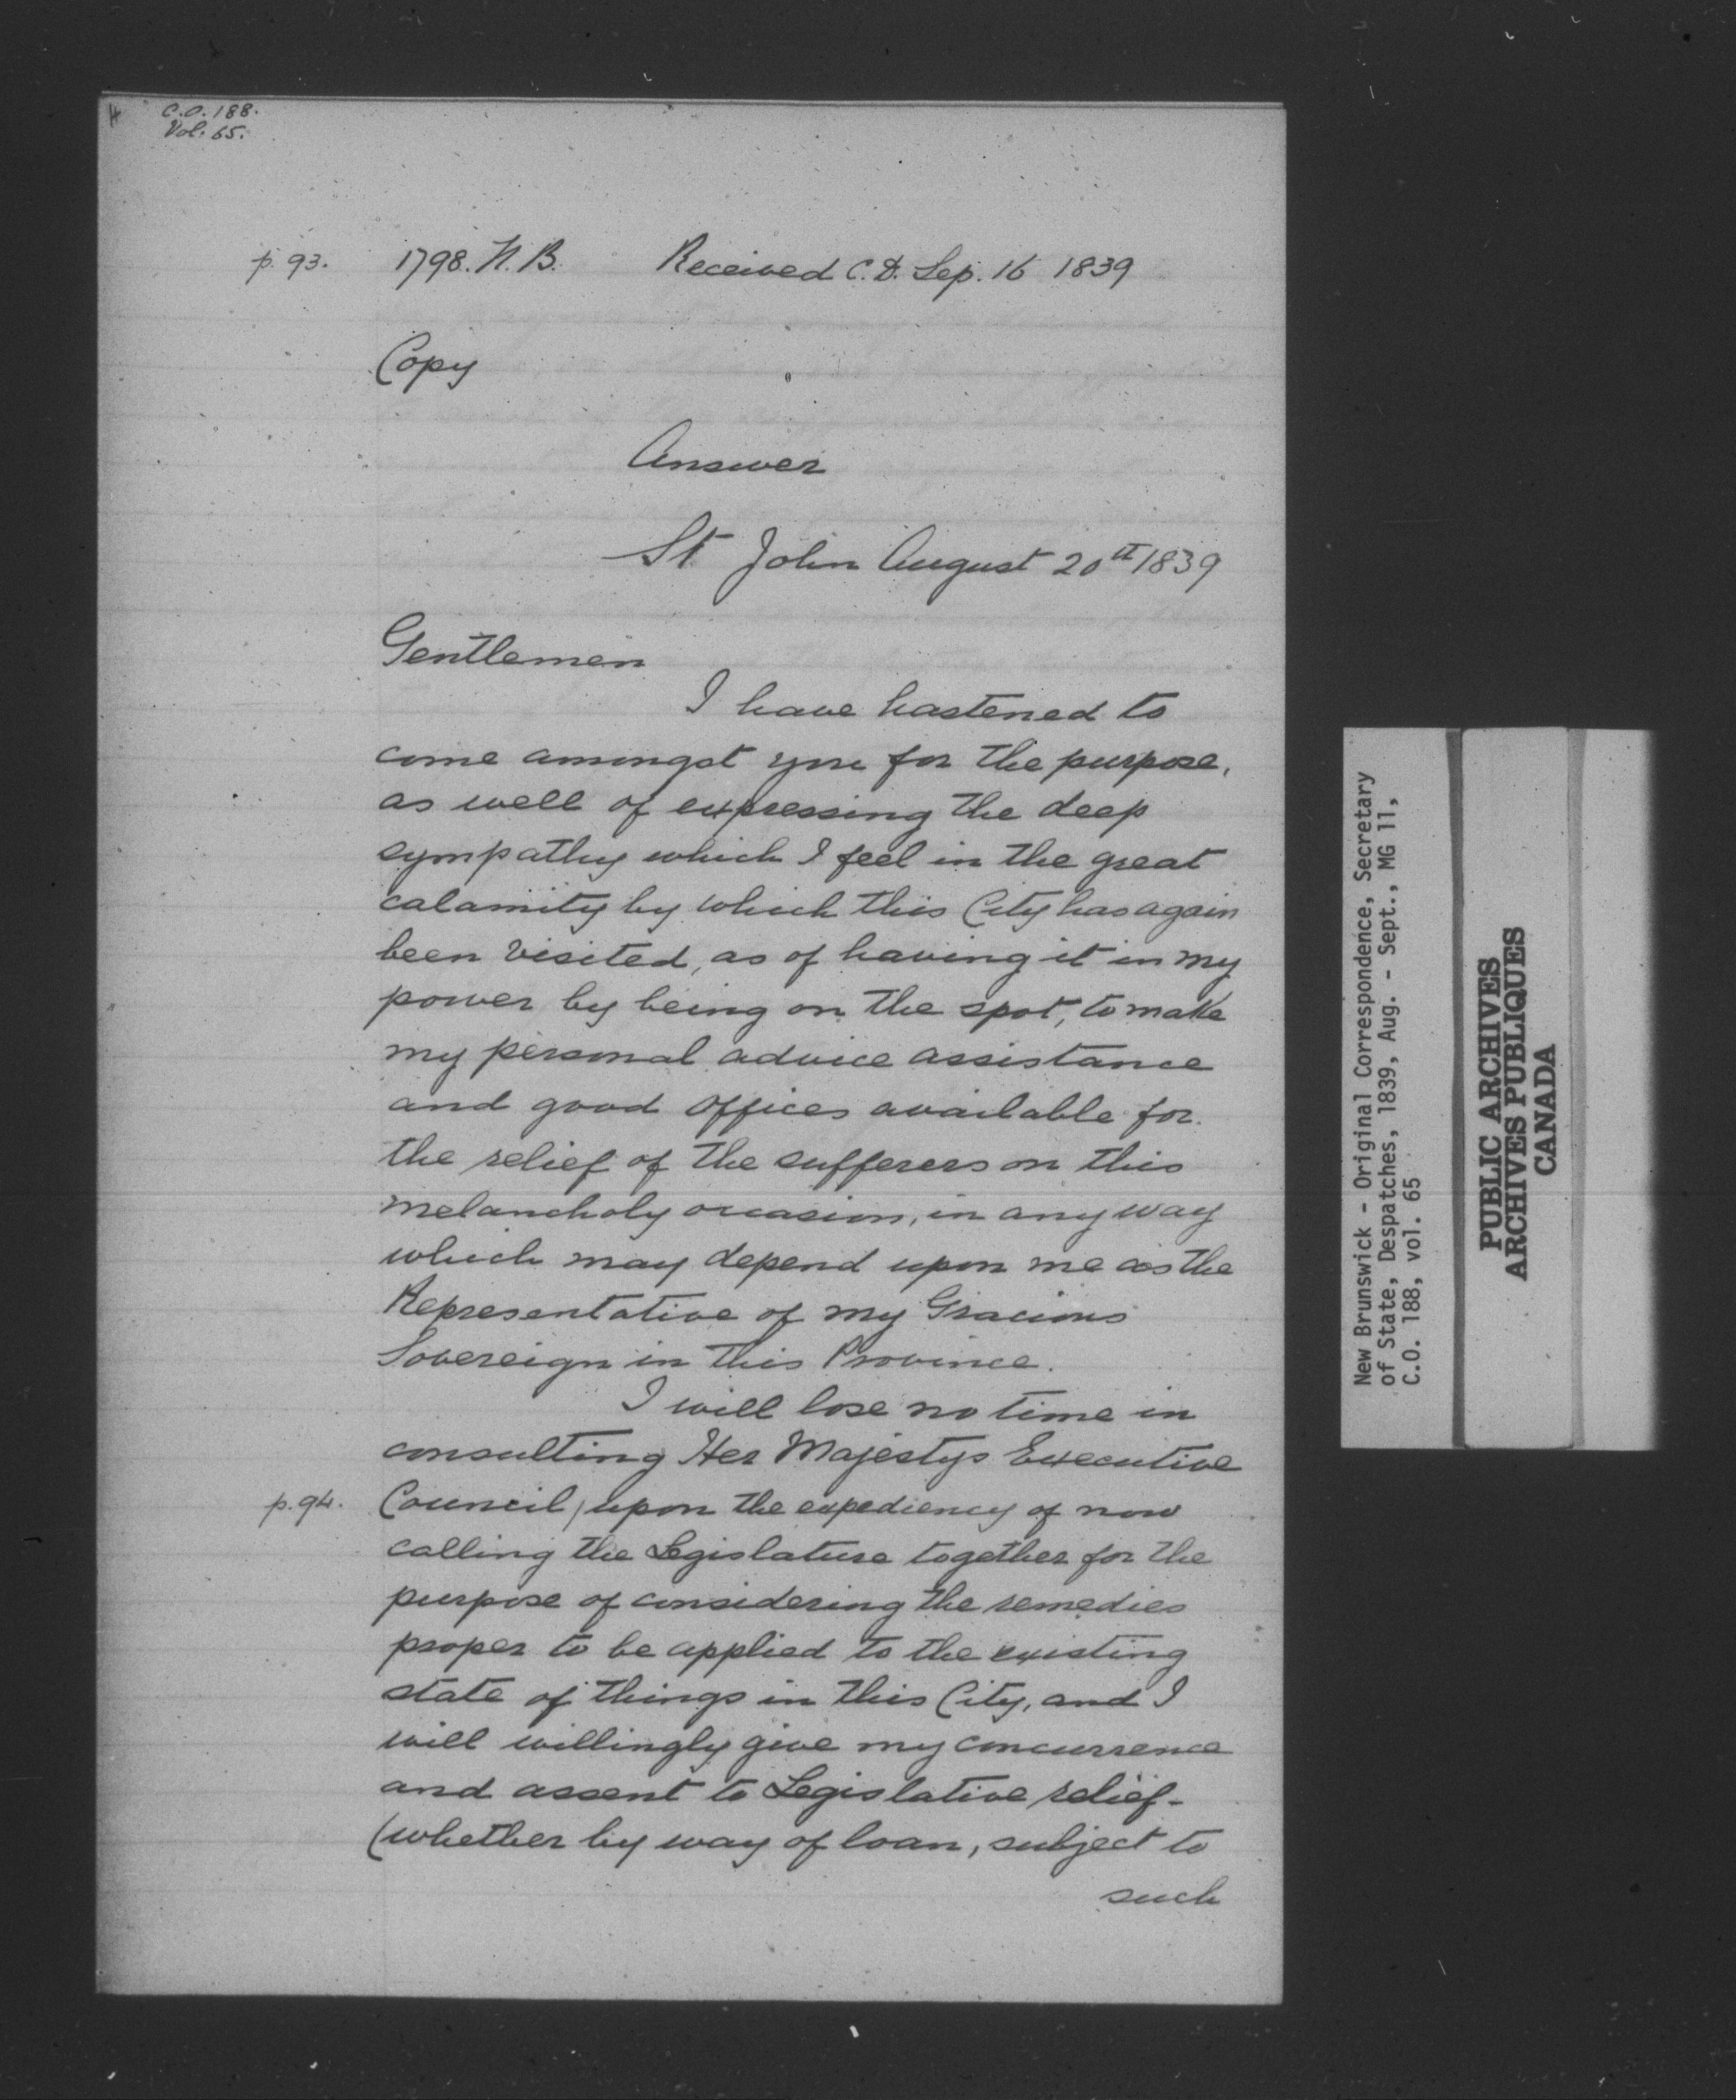 C.O. 188.
Vol. 65.
p. 93. 1798. N. B. Received C.D. Sep. 16 1839
Copy
Answer
St John August 20th 1839
Gentlemen
I have hastened to
come amongst you for the purpose,
as well of expressing the deep
sympathy which I feel in the great
calamity by which this City has again
been visited, as of having it in my
power by being on the spot, to make
my personal advice assistance
and good offices available for
the relief of the sufferers on this
melancholy occasion, in any way
which may depend upon me as the
Representative of my Gracious
Sovereign in this Province.
I will lose no time in
consulting Her Majestys Executive
p. 94. Council / upon the expediency of now
calling the Legislature together for the
purpose of considering the remedies
proper to be applied to the existing
state of things in this City, and I
will willingly give my concurrence
and assent to Legislative relief-
(whether by way of loan, subject to
such
New Brunswick - Original Correspondence, Secretary
of State, Despatches, 1839, Aug. - Sept., MG 11,
C.O. 188, vol. 65
PUBLIC ARCHIVES
ARCHIVES PUBLIQUES
CANADA